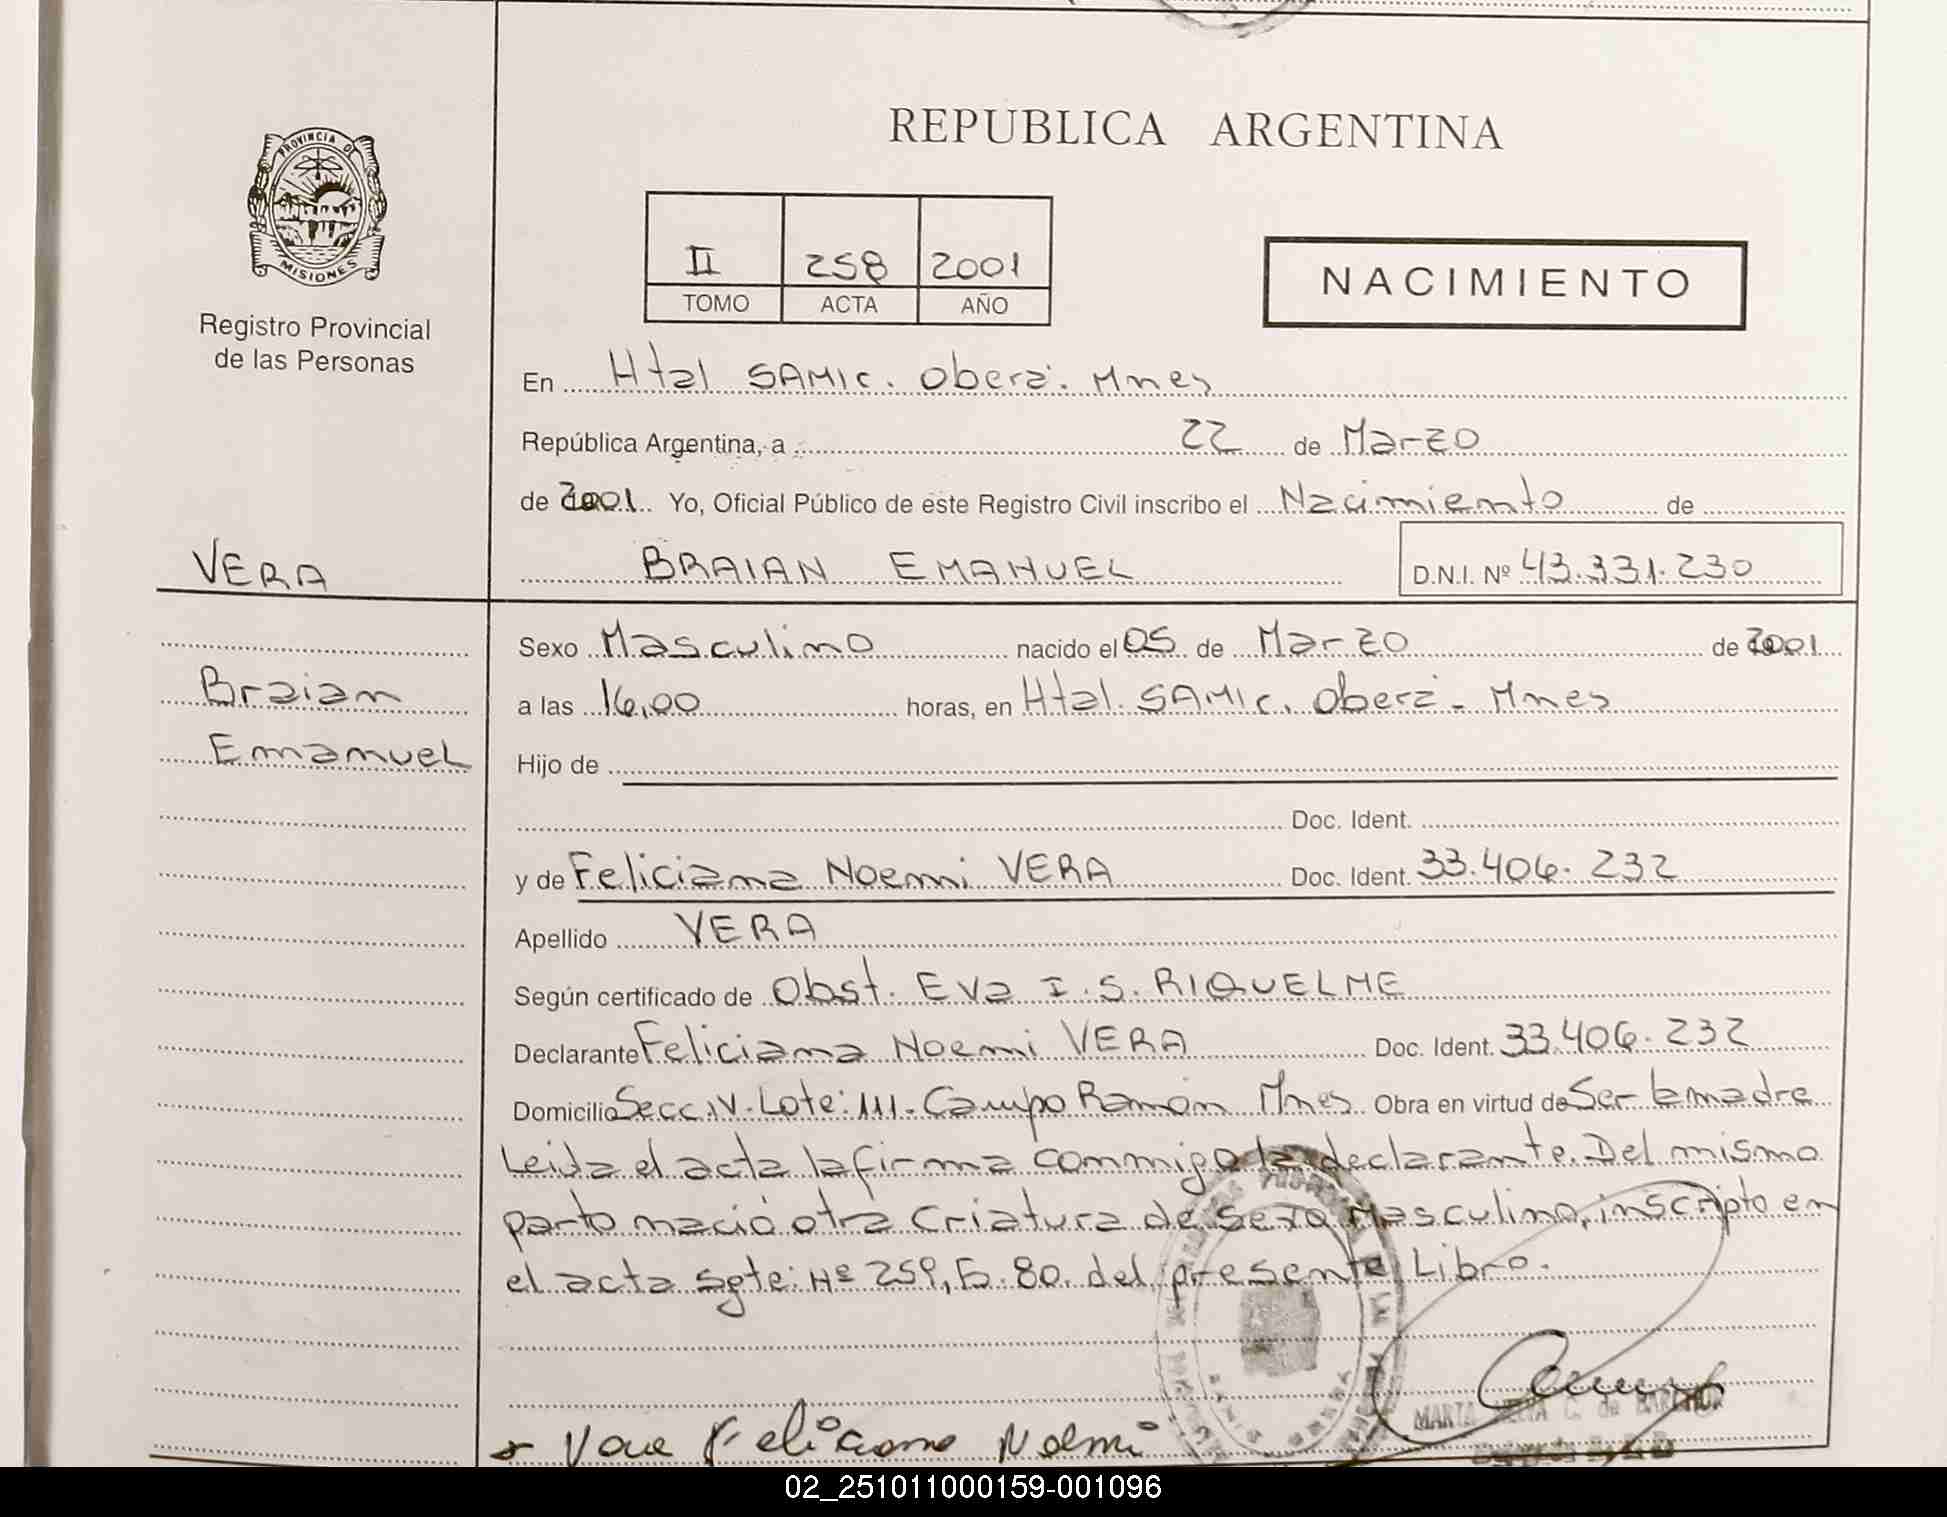 REPUBLICA ARGENTINA
PROVINCIA DE
MISIONES
Registro Provincial
de las Personas
II 258 2001
TOMO ACTA AÑO
NACIMIENTO
En Htal SAMIC. Oberá. Mnes
República Argentina, a 22 de Marzo
de 2001 Yo, Oficial Público de este Registro Civil inscribo el Nacimiento de
VERA
BRAIAN EMANUEL D.N.I. Nº 43.331.230
Braian
Emanuel
Sexo Masculino nacido el 05 de Marzo de 2001
a las 16,00 horas, en Htal. SAMIC. Oberá - Mnes
Hijo de
Doc. Ident.
y de Feliciana Noemi VERA Doc. Ident. 33.406.232
Apellido VERA
Según certificado de Obst. Eva I.S. RIQUELME
Declarante Feliciana Noemi VERA Doc. Ident. 33.406.232
Domicilio Secc. IV. Lote: 111. Campo Ramón Mnes Obra en virtud de Ser la madre
Leida el acta la firma conmigo la declarante. Del mismo
parto nació otra criatura de sexo Masculino, inscripto en
el acta sgte: Nº 259, Fo. 80. del presente Libro.
Vera Feliciana Noemi
MARTA C. de
02_251011000159-001096